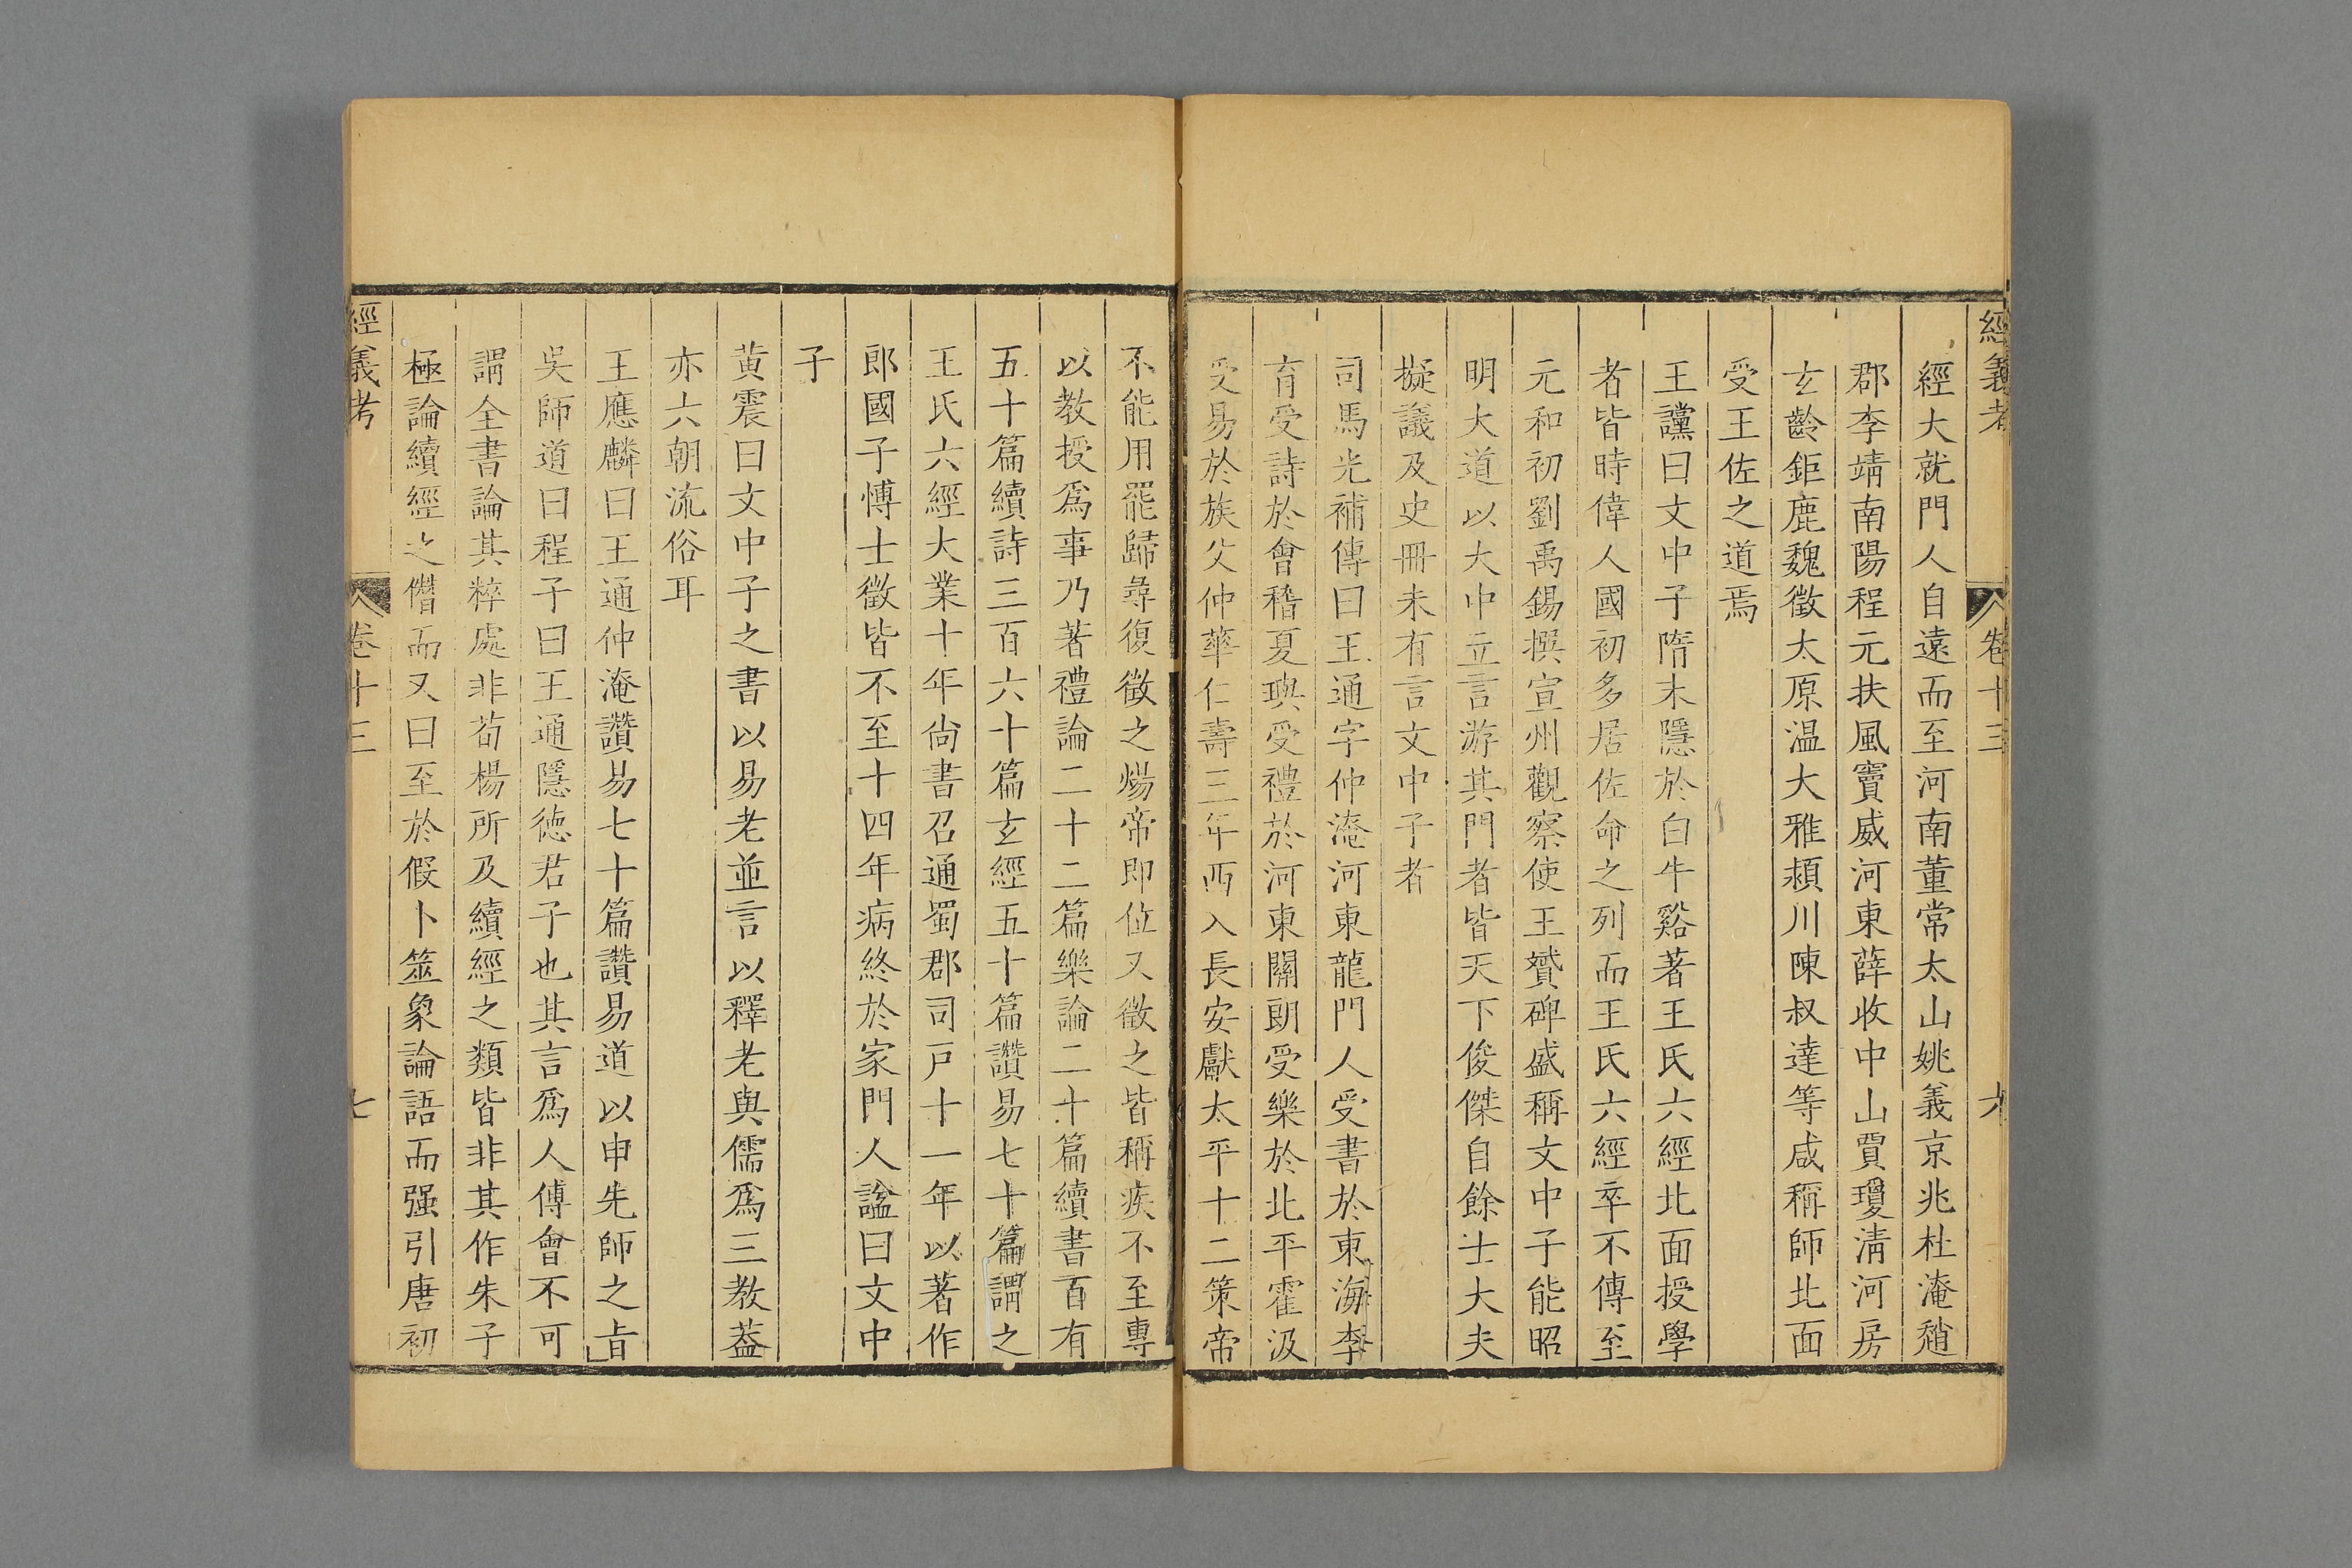 經義考 卷十三 六
經大就門人自遠而至河南董常太山姚義京兆杜淹趙
郡李靖南陽程元扶風竇威河東薛收中山賈瓊淸河房
玄齡鉅鹿魏徵太原温大雅潁川陳叔達等咸稱師北面
受王佐之道焉
王讜曰文中子隋末隱於白牛谿著王氏六經北面授學
者皆時偉人國初多居佐命之列而王氏六經卒不傳至
元和初劉禹錫撰宣州觀察使王贊碑盛稱文中子能昭
明大道以大中立言游其門者皆天下俊傑自餘士大夫
擬議及史冊未有言文中子者
司馬光補傳曰王通字仲淹河東龍門人受書於東海李
育受詩於會稽夏璵受禮於河東關朗受樂於北平霍汲
受易於族父仲華仁壽三年西入長安獻太平十二策帝
不能用罷歸尋復徵之煬帝即位又徵之皆稱疾不至專
以教授爲事乃著禮論二十二篇樂論二十篇續書百有
五十篇續詩三百六十篇玄經五十篇讚易七十篇謂之
王氏六經大業十年尙書召通蜀郡司戸十一年以著作
郎國子博士徵皆不至十四年病終於家門人諡曰文中
子
黄震曰文中子之書以易老並言以釋老與儒爲三教葢
亦六朝流俗耳
王應麟曰王通仲淹讚易七十篇讚易道以申先師之㫖
吳師道曰程子曰王通隱德君子也其言爲人傅會不可
謂全書論其粹處非荀楊所及續經之類皆非其作朱子
極論續經之僭而又曰至於假卜筮象論語而强引唐初
經義考 卷十三 七